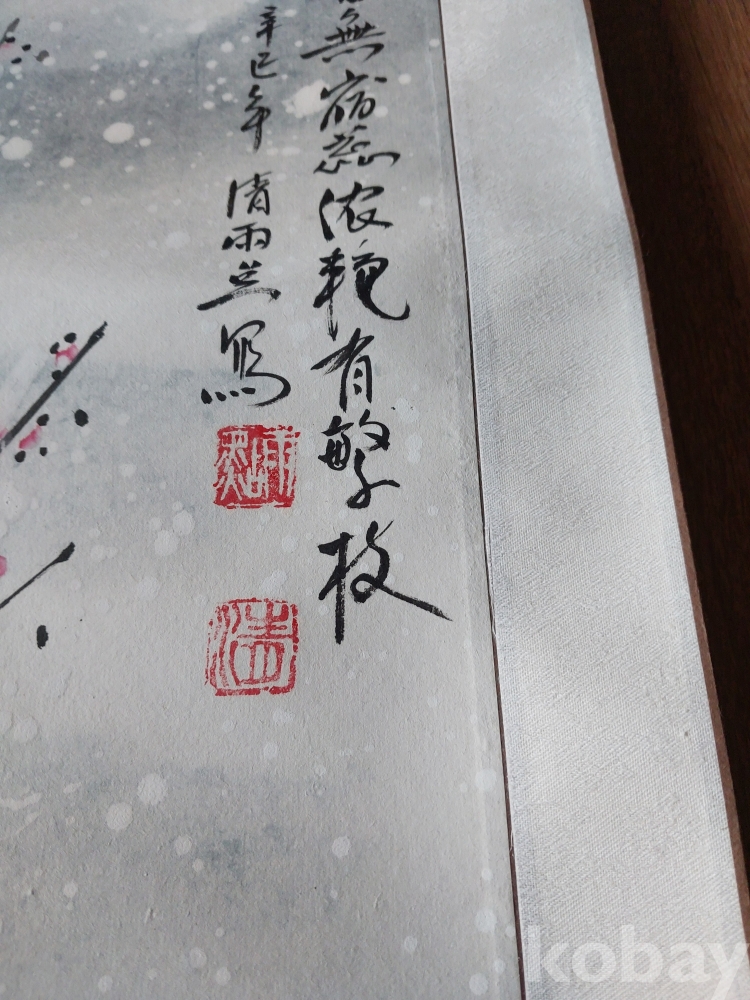 無宿蕊浓艳有繁枝
辛巳年 清雨兰写
kobay